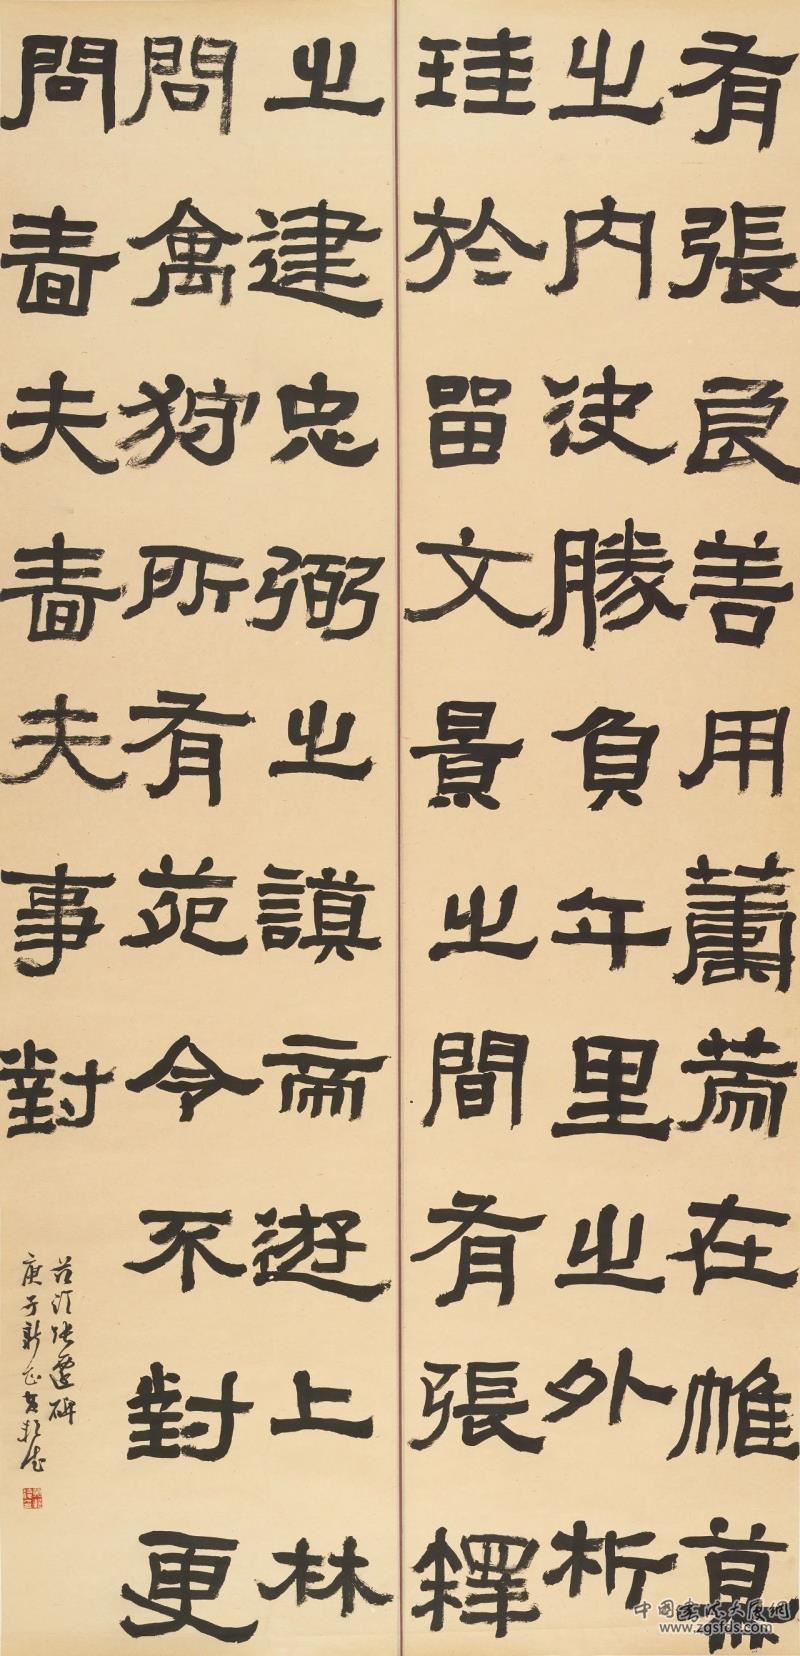 有張良善用籌策在帷幕
之内決勝負千里之外析
珪於留文景之間有張釋
之建忠弼之謨帝遊上林
問禽狩所有苑令不對更
問嗇夫嗇夫事對
庚子新正
中國書法大展網
www.zgsfds.com